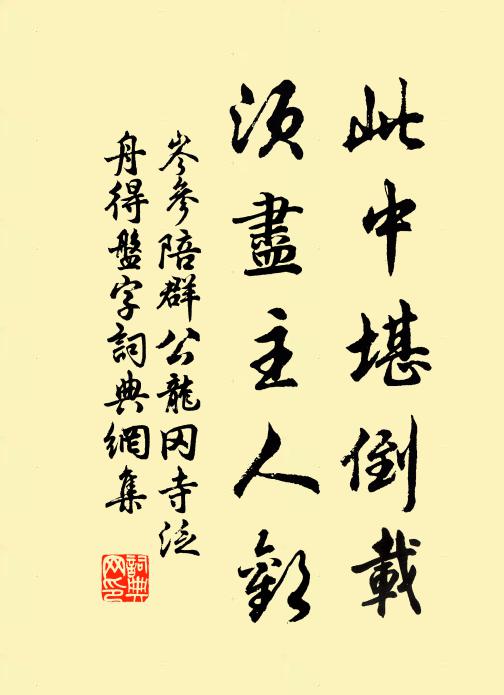 此中堪倒載
須盡主人歡
岑參陪群公龍冈寺泛
舟得盤字詞典網集
詞典网印